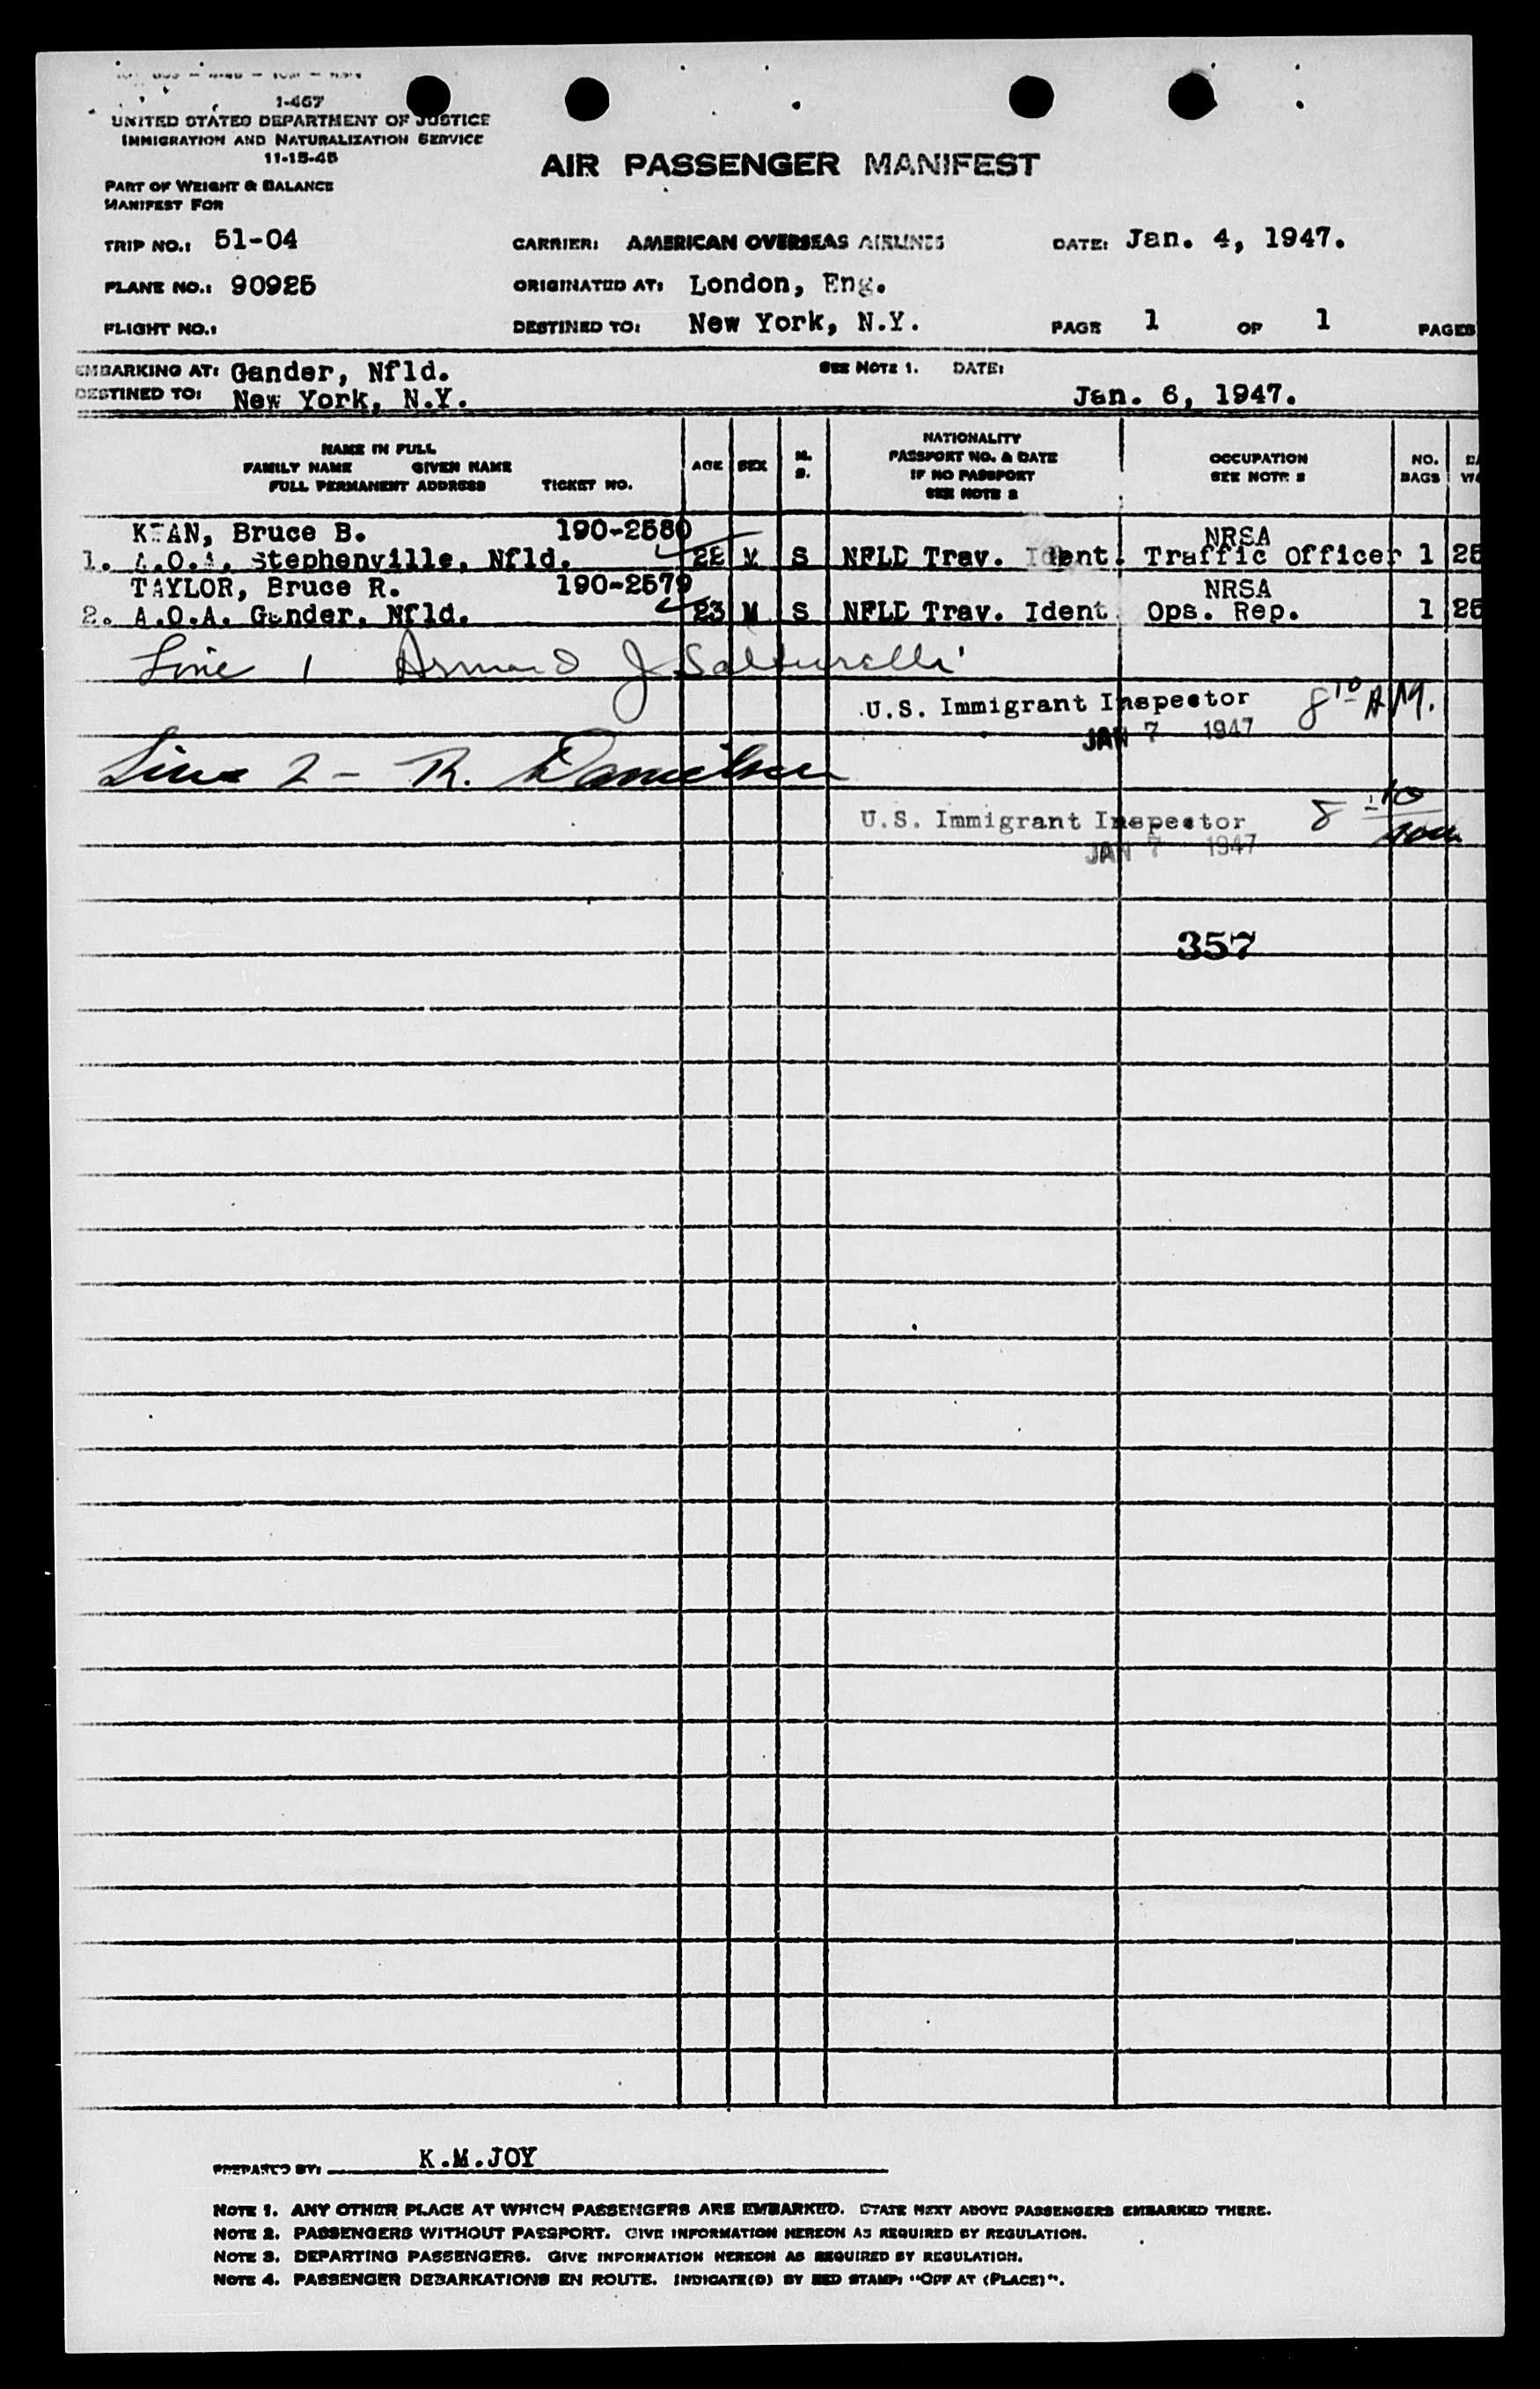 1-467
UNITED STATES DEPARTMENT OF JUSTICE
IMMIGRATION AND NATURALIZATION SERVICE
11-15-45
AIR PASSENGER MANIFEST
PART OF WEIGHT & BALANCE
MANIFEST FOR
TRIP NO.: 51-04 CARRIER: AMERICAN OVERSEAS AIRLINES DATE: Jan. 4, 1947.
PLANE NO.: 90925 ORIGINATED AT: London, Eng.
FLIGHT NO.: DESTINED TO: New York, N.Y. PAGE 1 OF 1 PAGES
EMBARKING AT: Gander, Nfld. SEE NOTE 1. DATE:
DESTINED TO: New York, N.Y. Jan. 6, 1947.
NAME IN FULL
FAMILY NAME GIVEN NAME
FULL PERMANENT ADDRESS TICKET NO. AGE SEX M. S. NATIONALITY PASSPORT NO. & DATE IF NO PASSPORT SEE NOTE 2 OCCUPATION SEE NOTE 3 NO. BAGS
KEAN, Bruce B. 190-2580 NRSA
1. A.O.A. Stephenville, Nfld. 22 M S NFLD Trav. Ident. Traffic Officer 1 25
TAYLOR, Bruce R. 190-2579 NRSA
2. A.O.A. Gander, Nfld. 23 M S NFLD Trav. Ident. Ops. Rep. 1 25
Line 1 Armand J Salturelli
U.S. Immigrant Inspector 8 10 AM.
JAN 7 1947
Line 2 - R. Danielsen
U.S. Immigrant Inspector 8 10
JAN 7 1947
357
PREPARED BY: K.M.JOY
NOTE 1. ANY OTHER PLACE AT WHICH PASSENGERS ARE EMBARKED. STATE NEXT ABOVE PASSENGERS EMBARKED THERE.
NOTE 2. PASSENGERS WITHOUT PASSPORT. GIVE INFORMATION HEREON AS REQUIRED BY REGULATION.
NOTE 3. DEPARTING PASSENGERS. GIVE INFORMATION HEREON AS REQUIRED BY REGULATION.
NOTE 4. PASSENGER DEBARKATIONS EN ROUTE. INDICATE(D) BY RED STAMP: "OFF AT (PLACE)".